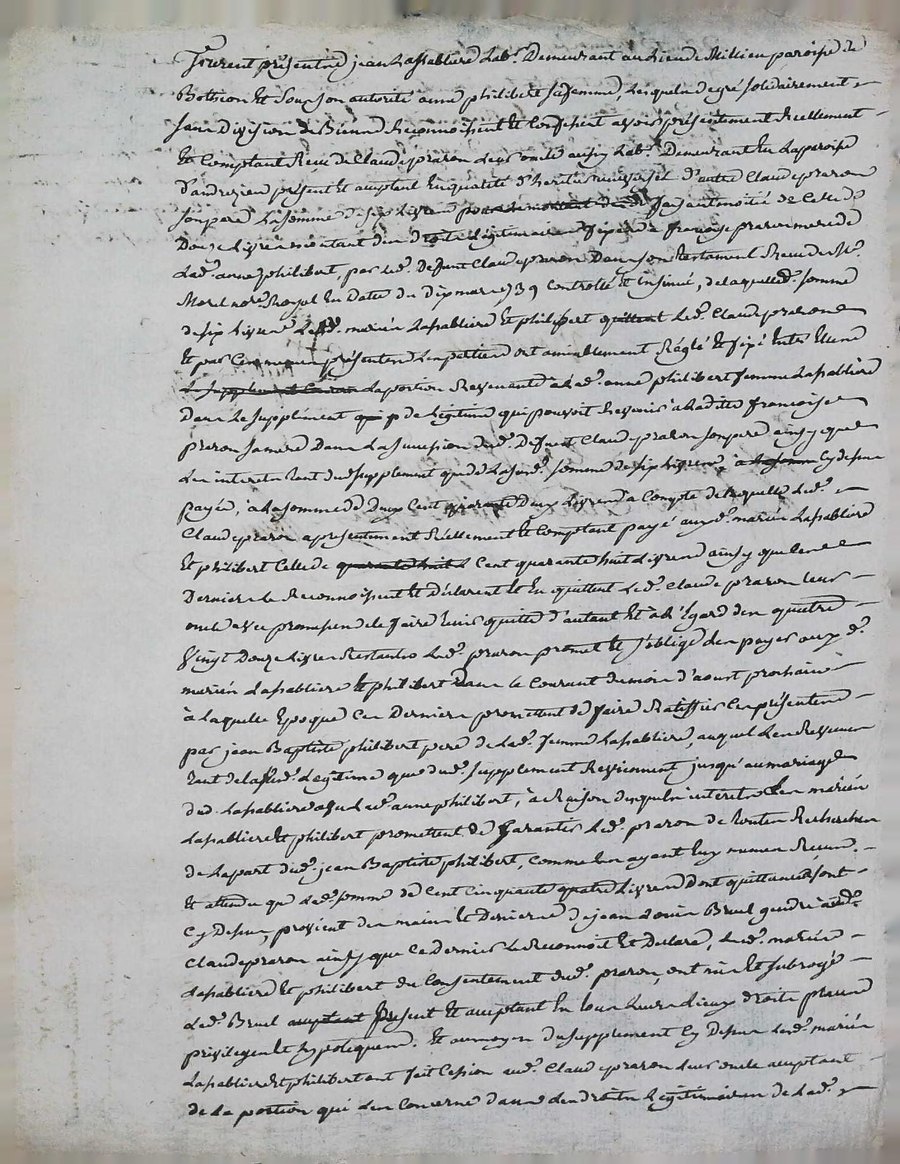 furent présents jean Lasabliere Lab.r Demeurant au lieu de Millieu paroisse de
Botheon Et Sous son autorité anne philibert sa femme, Lesquels de gré solidairement
sans Division de Biens Reconnoissent Et Confessent avoir présentement Reellement
Et Comptant Reçu de Claude praron Leur oncle aussy Lab.r Demeurant En La paroisse
D'andrezieu présent Et acceptant En qualité d'heritier universel d'autre Claude praron
Son pere La somme de six Livres faisant moitié de Celle de
Douze Livres restant des Droits Legitimaires fixés à françoise praron mere de
Lad. anne philibert, par led. Defunt Claude praron Dans son Testament Reçu de M.e
Morel no.re Royal En Date du Dix mars 1739 Controllé Et Insinué, de laquelle d. somme
de six Livres Lesd. mariés Lasabliere Et philibert quittent Led. Claude praron
Et par Commun présentes Les parties ont amiablement Réglé Et fixé Entr'Elles
La portion Revenante à Lad. anne philibert femme Lasabliere
Dans Le supplement de Legitime qui pouvoit Revenir à Laditte françoise
praron sa mere Dans La succession dud. Defunt Claude praron son pere ainsy que
Les interets tant dud. supplement que de Lasusd. somme de six Livres, Cy dessus
payée, à La somme de Deux Cent quarante Deux Livres à Compte de laquelle Led.
Claude praron a présentement Réellement Et Comptant payé auxd. mariés Lasabliere
Et philibert Celle de Cent quarante huit Livres ainsy que Ces
Derniers Le Reconnoissent Et Déclarent Et En quittent Led. Claude praron leur
oncle avec promesse de le faire tenir quitte d'autant Et à L'Egard des quatre
Vingt Douze Livres Restantes Led. praron promet Et s'oblige de les payer aux d.
mariés Lasabliere Et philibert Dans Le Courant du mois d'aoust prochain
à Laquelle Epoque Ces Derniers promettent de faire Ratiffier Ces présentes
par jean Baptiste philibert pere de Lad. femme Lasabliere, auquel Les Revenus
tant de la susd. Legitime que dud. supplement Reviennent jusqu'au mariage
dud. Lasabliere avec Lad. anne philibert, à Raison desquels interets Les mariés
Lasabliere Et philibert promettent de Garantir Led. praron de toutes Recherches
de La part dud. jean Baptiste philibert, Comme Les ayant Luy même Reçus.
Et attendu que Lad. somme de Cent Cinquante quatre Livres Dont quittances sont
Cy Dessus, provient des mains Et Deniers de jean Louis Bruel gendre aud.
Claude praron ainsy que Ce Dernier Le Reconnoit Et Declare, Lesd. mariés
Lasabliere Et philibert du Consentement dud. praron, ont mis Et subrogé
Led. Bruel présent Et acceptant En tous Leurs Lieux droits places
privileges Et hypoteques. Et au moyen du supplement Cy Dessus Lesd. mariés
Lasabliere Et philibert ont fait Cession aud. Claude praron Leur oncle acceptant
de La portion qui Les Concerne dans les droits Legitimaires de Lad.